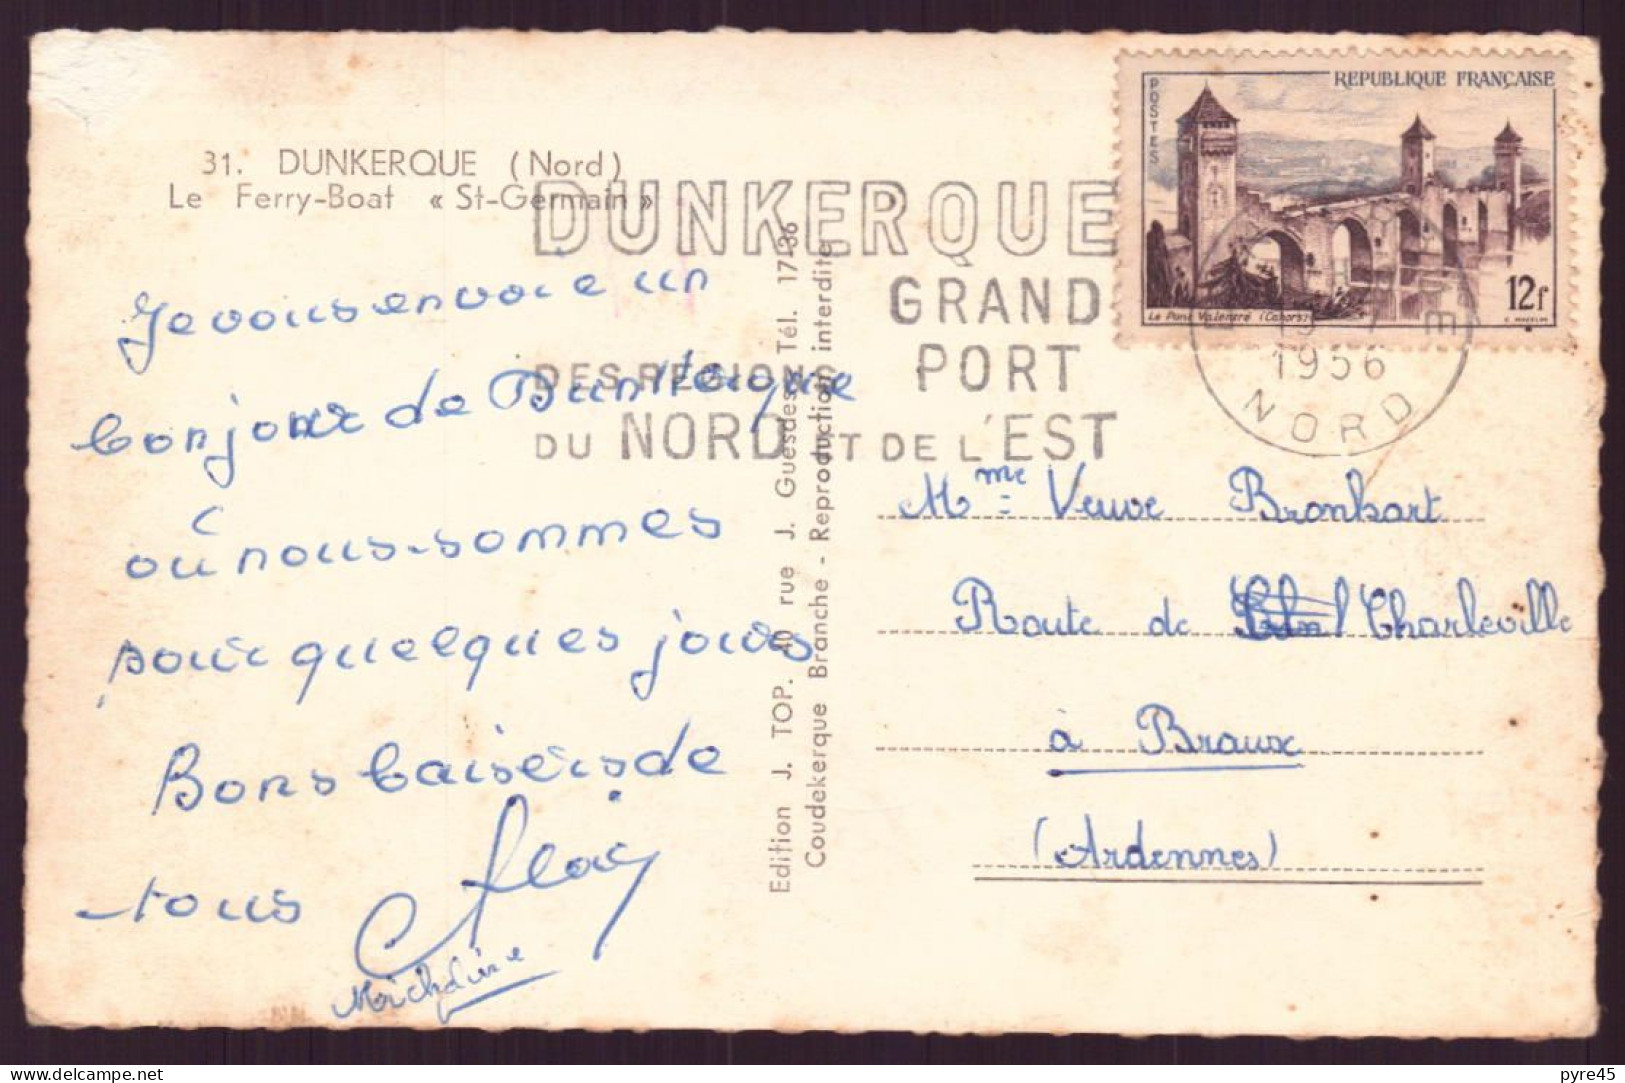 31. DUNKERQUE (Nord)
Le Ferry-Boat « St-Germain »
Je vous envoie un
bonjour de Dunkerque
où nous sommes
pour quelques jours
Bons baisers de
tous
Edition J. TOP. 40 rue J. Guesdes Tél. 17-36
Coudekerque Branche - Reproduction interdite
DUNKERQUE
GRAND
PORT
DES REGIONS
DU NORD ET DE L'EST
POSTES
REPUBLIQUE FRANÇAISE
Le Pont Valentré (Cahors)
12f
1956
NORD
Mme Veuve Bronkart
Route de Charleville
à Braux
(Ardennes)
pyre45